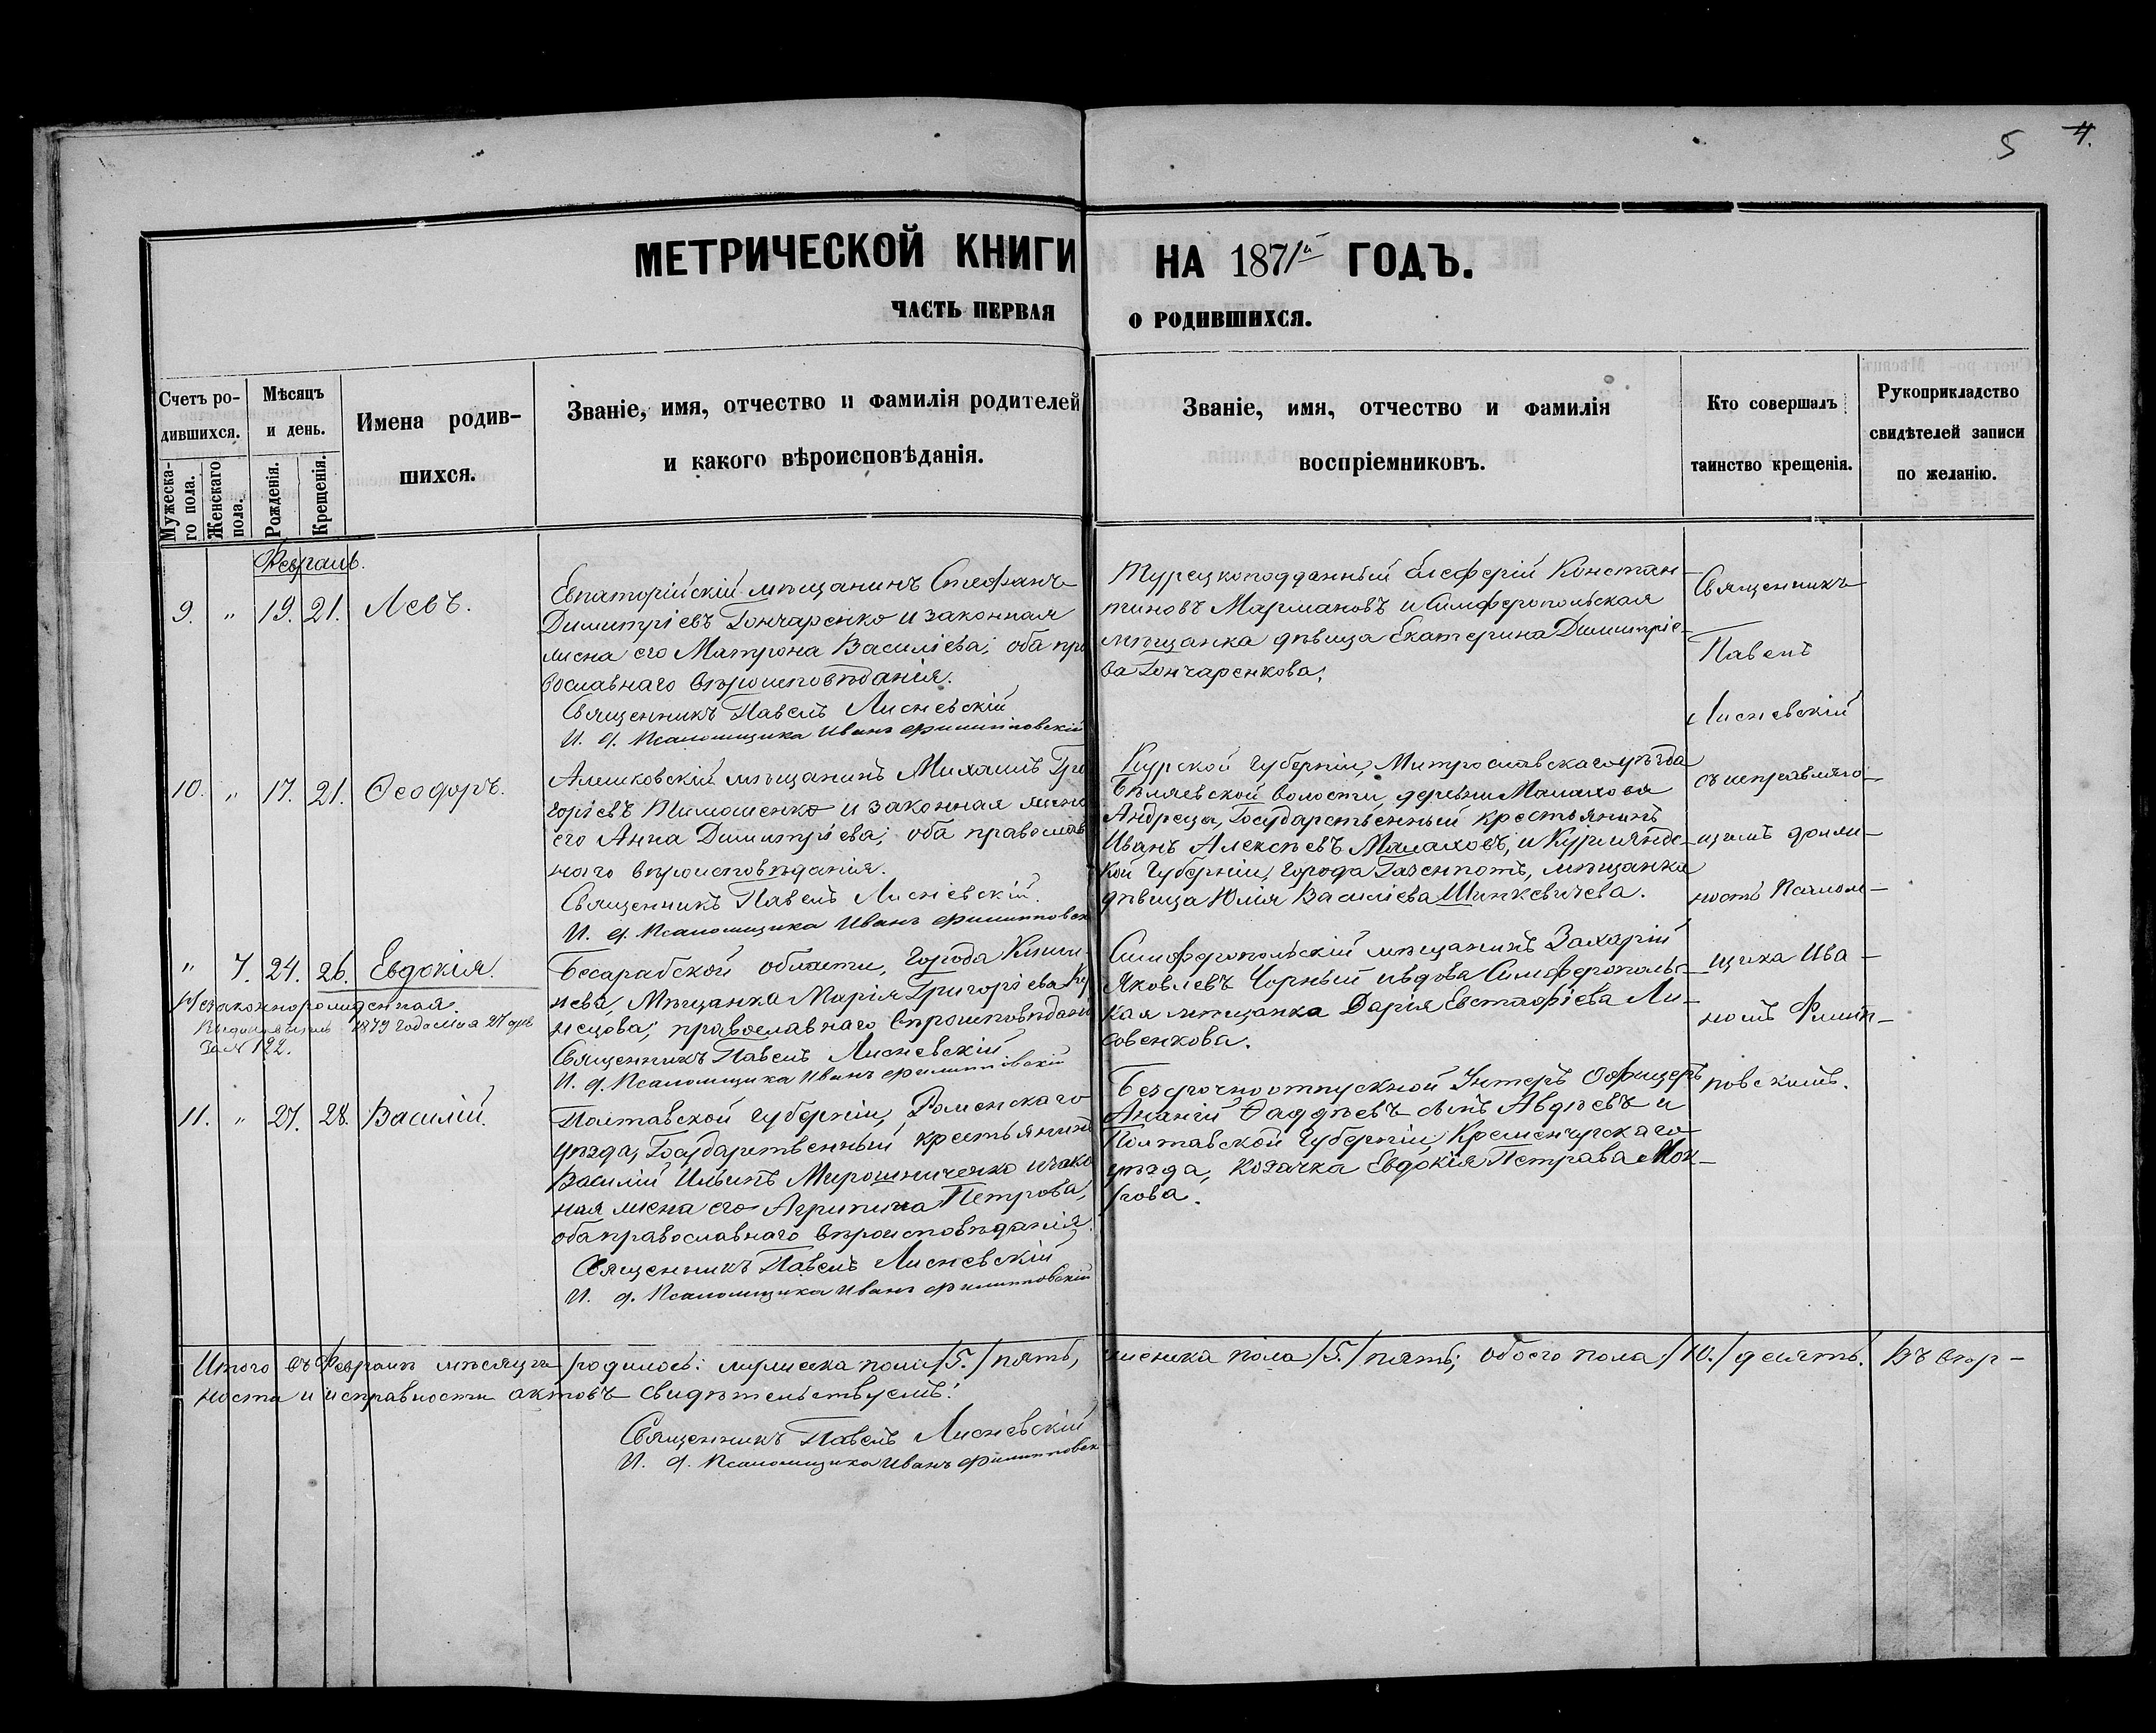 5 4.
МЕТРИЧЕСКОЙ КНИГИ НА 1871й ГОДЪ.
ЧАСТЬ ПЕРВАЯ О РОДИВШИХСЯ.
Счетъ ро-
дившихся.
Мужеска-
го пола.
Женскаго
пола.
Мѣсяцъ
и день.
Рожденія.
Крещенія.
Имена родив-
шихся.
Званіе, имя, отчество и фамилія родителей
и какого вѣроисповѣданія.
Званіе, имя, отчество и фамилія
воспріемниковъ.
Кто совершалъ
таинство крещенія.
Рукоприкладство
свидѣтелей записи
по желанію.
Февраль.
9. " 19. 21. Левъ.
Евпаторійскій мѣщанинъ Стефанъ
Димитріевъ Гончаренко и законная
жена его Матрона Василіева; оба пра
вославнаго вѣроисповѣданія.
Священникъ Павелъ Лисневскій
И. д. Псаломщика Иванъ Филипповскій
Турецкоподданный Елеферій Констан-
тиновъ Мармановъ и Симферопольская
мѣщанка дѣвица Екатерина Димитріе-
ва Гончаренкова.
10. " 17. 21. Ѳеодоръ.
Алешковскій мѣщанинъ Михаилъ Гри
горіевъ Тимошенко и законная жена
его Анна Димитріева; оба православ
наго вѣроисповѣданія.
Священникъ Павелъ Лисневскій.
И. д. Псаломщика Иванъ Филипповск
Курской Губерніи, уѣзда
Бѣляевской волости, деревни Малахова
Государственный крестьянинъ
Иванъ Алексѣевъ Малаховъ, и Курляндс-
кой Губерніи, города Газенпотъ, мѣщанка
дѣвица Юлія Василіева Шипкевичева.
" 7. 24. 26. Евдокія.
Незаконнорожденная.
1879 года Мая 27 дня
За № 122.
Бесарабской области, города Киши-
нева, Мѣщанка Марія Григоріева
православнаго вѣроисповѣдані
Священникъ Павелъ Лисневскій
И. д. Псаломщика Иванъ Филипповскій
Симферопольскій мѣщанинъ Захарій
Яковлевъ Чорный и вдова Симферопольс-
кая мѣщанка Дарія Евстафіева Ли-
совенкова.
11. " 27. 28. Василій.
Полтавской Губерніи, Роменскаго
уѣзда, Государственный крестьянинъ
Василій Ильинъ Мирошниченко и зако
ная жена его Агрипина Петрова,
оба православнаго вѣроисповѣданія.
Священникъ Павелъ Лисневскій
И. д. Псаломщика Иванъ Филипповскій
Безсрочноотпускной Унтеръ Офицеръ
Ананій Ѳаддѣевъ сынъ Авдѣевъ и
Полтавской Губерніи, Кременчугскаго
уѣзда, козачка Евдокія Петрова Мок-
рова.
Священникъ
Павелъ
Лисневскій
съ исправляю-
щимъ долж-
ность Псалом-
щика Ива-
номъ Филип-
повскимъ.
Итого въ Февралѣ мѣсяцѣ родилось: мужеска пола /5./ пять, женска пола /5./ пять; обоего пола /10./ десять. Въ вѣр-
ности и исправности актовъ свидѣтельствуемъ:
Священникъ Павелъ Лисневскій
И. д. Псаломщика Иванъ Филипповск